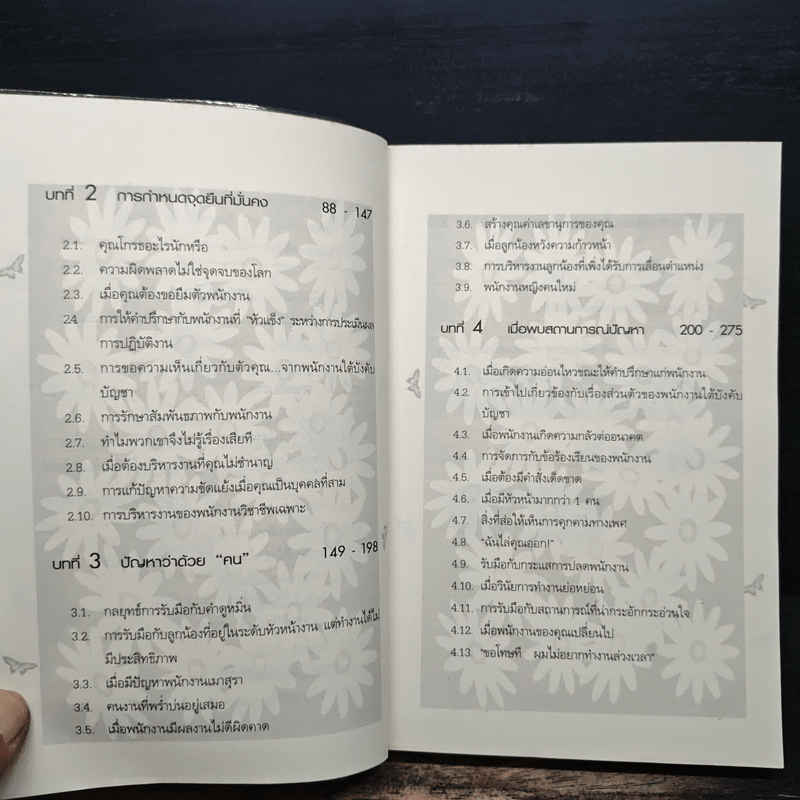 บทที่ 2 การกำหนดจุดยืนที่มั่นคง 88 - 147
2.1. คุณโกรธอะไรนักหรือ
2.2. ความผิดพลาดไม่ใช่จุดจบของโลก
2.3. เมื่อคุณต้องขอยืมตัวพนักงาน
2.4. การให้คำปรึกษากับพนักงานที่ "หัวแข็ง" ระหว่างการประเมินผล
การปฏิบัติงาน
2.5. การขอความเห็นเกี่ยวกับตัวคุณ...จากพนักงานใต้บังคับ
บัญชา
2.6. การรักษาสัมพันธภาพกับพนักงาน
2.7. ทำไมพวกเขาจึงไม่รู้เรื่องเสียที
2.8. เมื่อต้องบริหารงานที่คุณไม่ชำนาญ
2.9. การแก้ปัญหาความขัดแย้งเมื่อคุณเป็นบุคคลที่สาม
2.10. การบริหารงานของพนักงานวิชาชีพเฉพาะ
บทที่ 3 ปัญหาว่าด้วย "คน" 149 - 198
3.1. กลยุทธ์การรับมือกับคำดูหมิ่น
3.2 การรับมือกับลูกน้องที่อยู่ในระดับหัวหน้างาน แต่ทำงานได้ไม่
มีประสิทธิภาพ
3.3. เมื่อมีปัญหาพนักงานเมาสุรา
3.4. คนงานที่พร่ำบ่นอยู่เสมอ
3.5. เมื่อพนักงานมีผลงานไม่ดีผิดคาด
3.6. สร้างคุณค่าเลขานุการของคุณ
3.7. เมื่อลูกน้องหวังความก้าวหน้า
3.8. การบริหารงานลูกน้องที่เพิ่งได้รับการเลื่อนตำแหน่ง
3.9. พนักงานหญิงคนใหม่
บทที่ 4 เมื่อพบสถานการณ์ปัญหา 200 - 275
4.1. เมื่อเกิดความอ่อนไหวขณะให้คำปรึกษาแก่พนักงาน
4.2. การเข้าไปเกี่ยวข้องกับเรื่องส่วนตัวของพนักงานใต้บังคับ
บัญชา
4.3. เมื่อพนักงานเกิดความกลัวต่ออนาคต
4.4. การจัดการกับข้อร้องเรียนของพนักงาน
4.5. เมื่อต้องมีคำสั่งเด็ดขาด
4.6. เมื่อมีหัวหน้ามากกว่า 1 คน
4.7. สิ่งที่ส่อให้เห็นการคุกคามทางเพศ
4.8. "ฉันไล่คุณออก!"
4.9. รับมือกับกระแสการปลดพนักงาน
4.10. เมื่อวินัยการทำงานย่อหย่อน
4.11. การรับมือกับสถานการณ์ที่น่ากระอักกระอ่วนใจ
4.12. เมื่อพนักงานของคุณเปลี่ยนไป
4.13. "ขอโทษที ผมไม่อยากทำงานล่วงเวลา"